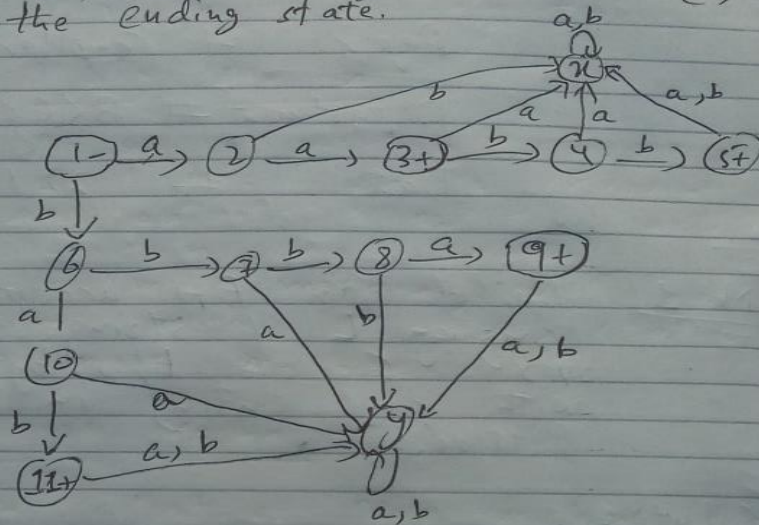 the ending state.
a,b
x
b a a a,b
1- a 2 a 3+ b 4 b 5+
b
6 b 7 b 8 a 9+
a a b a,b
10
a
b y
11+ a, b
a,b